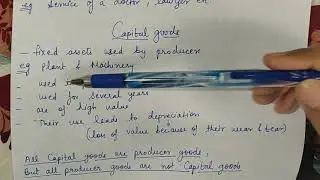 eg Service of a doctor, lawyer etc
Capital goods
— fixed assets used by producer
eg Plant & Machinery
— used
— used for several years
— are of high value
— Their use leads to depreciation
(loss of value because of their wear & tear)
All Capital goods are producer goods,
But all producer goods are not Capital goods